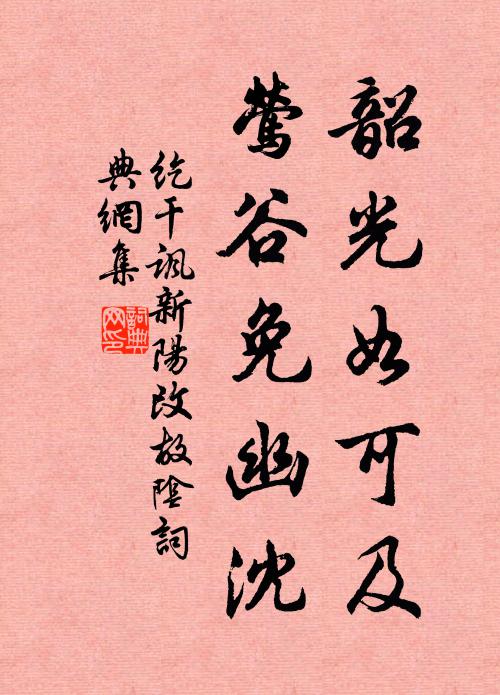 韶光如可及
鶯谷免幽沈
紇干諷新陽改故陰詞
典網集
詞典網印